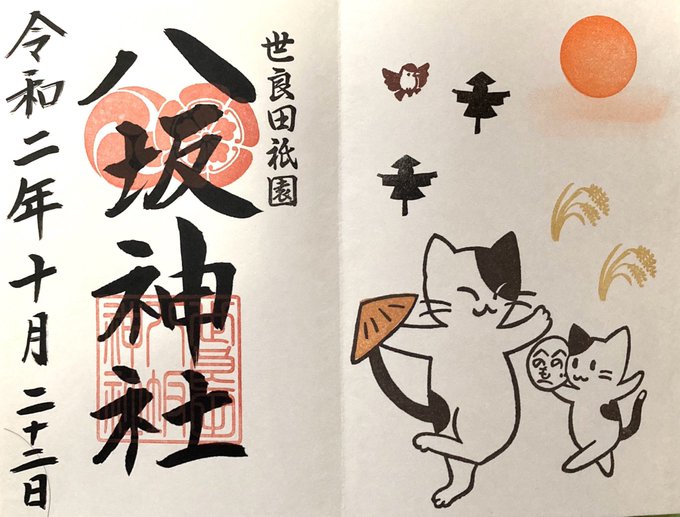 世良田祇園
八坂神社
令和二年十月二十二日